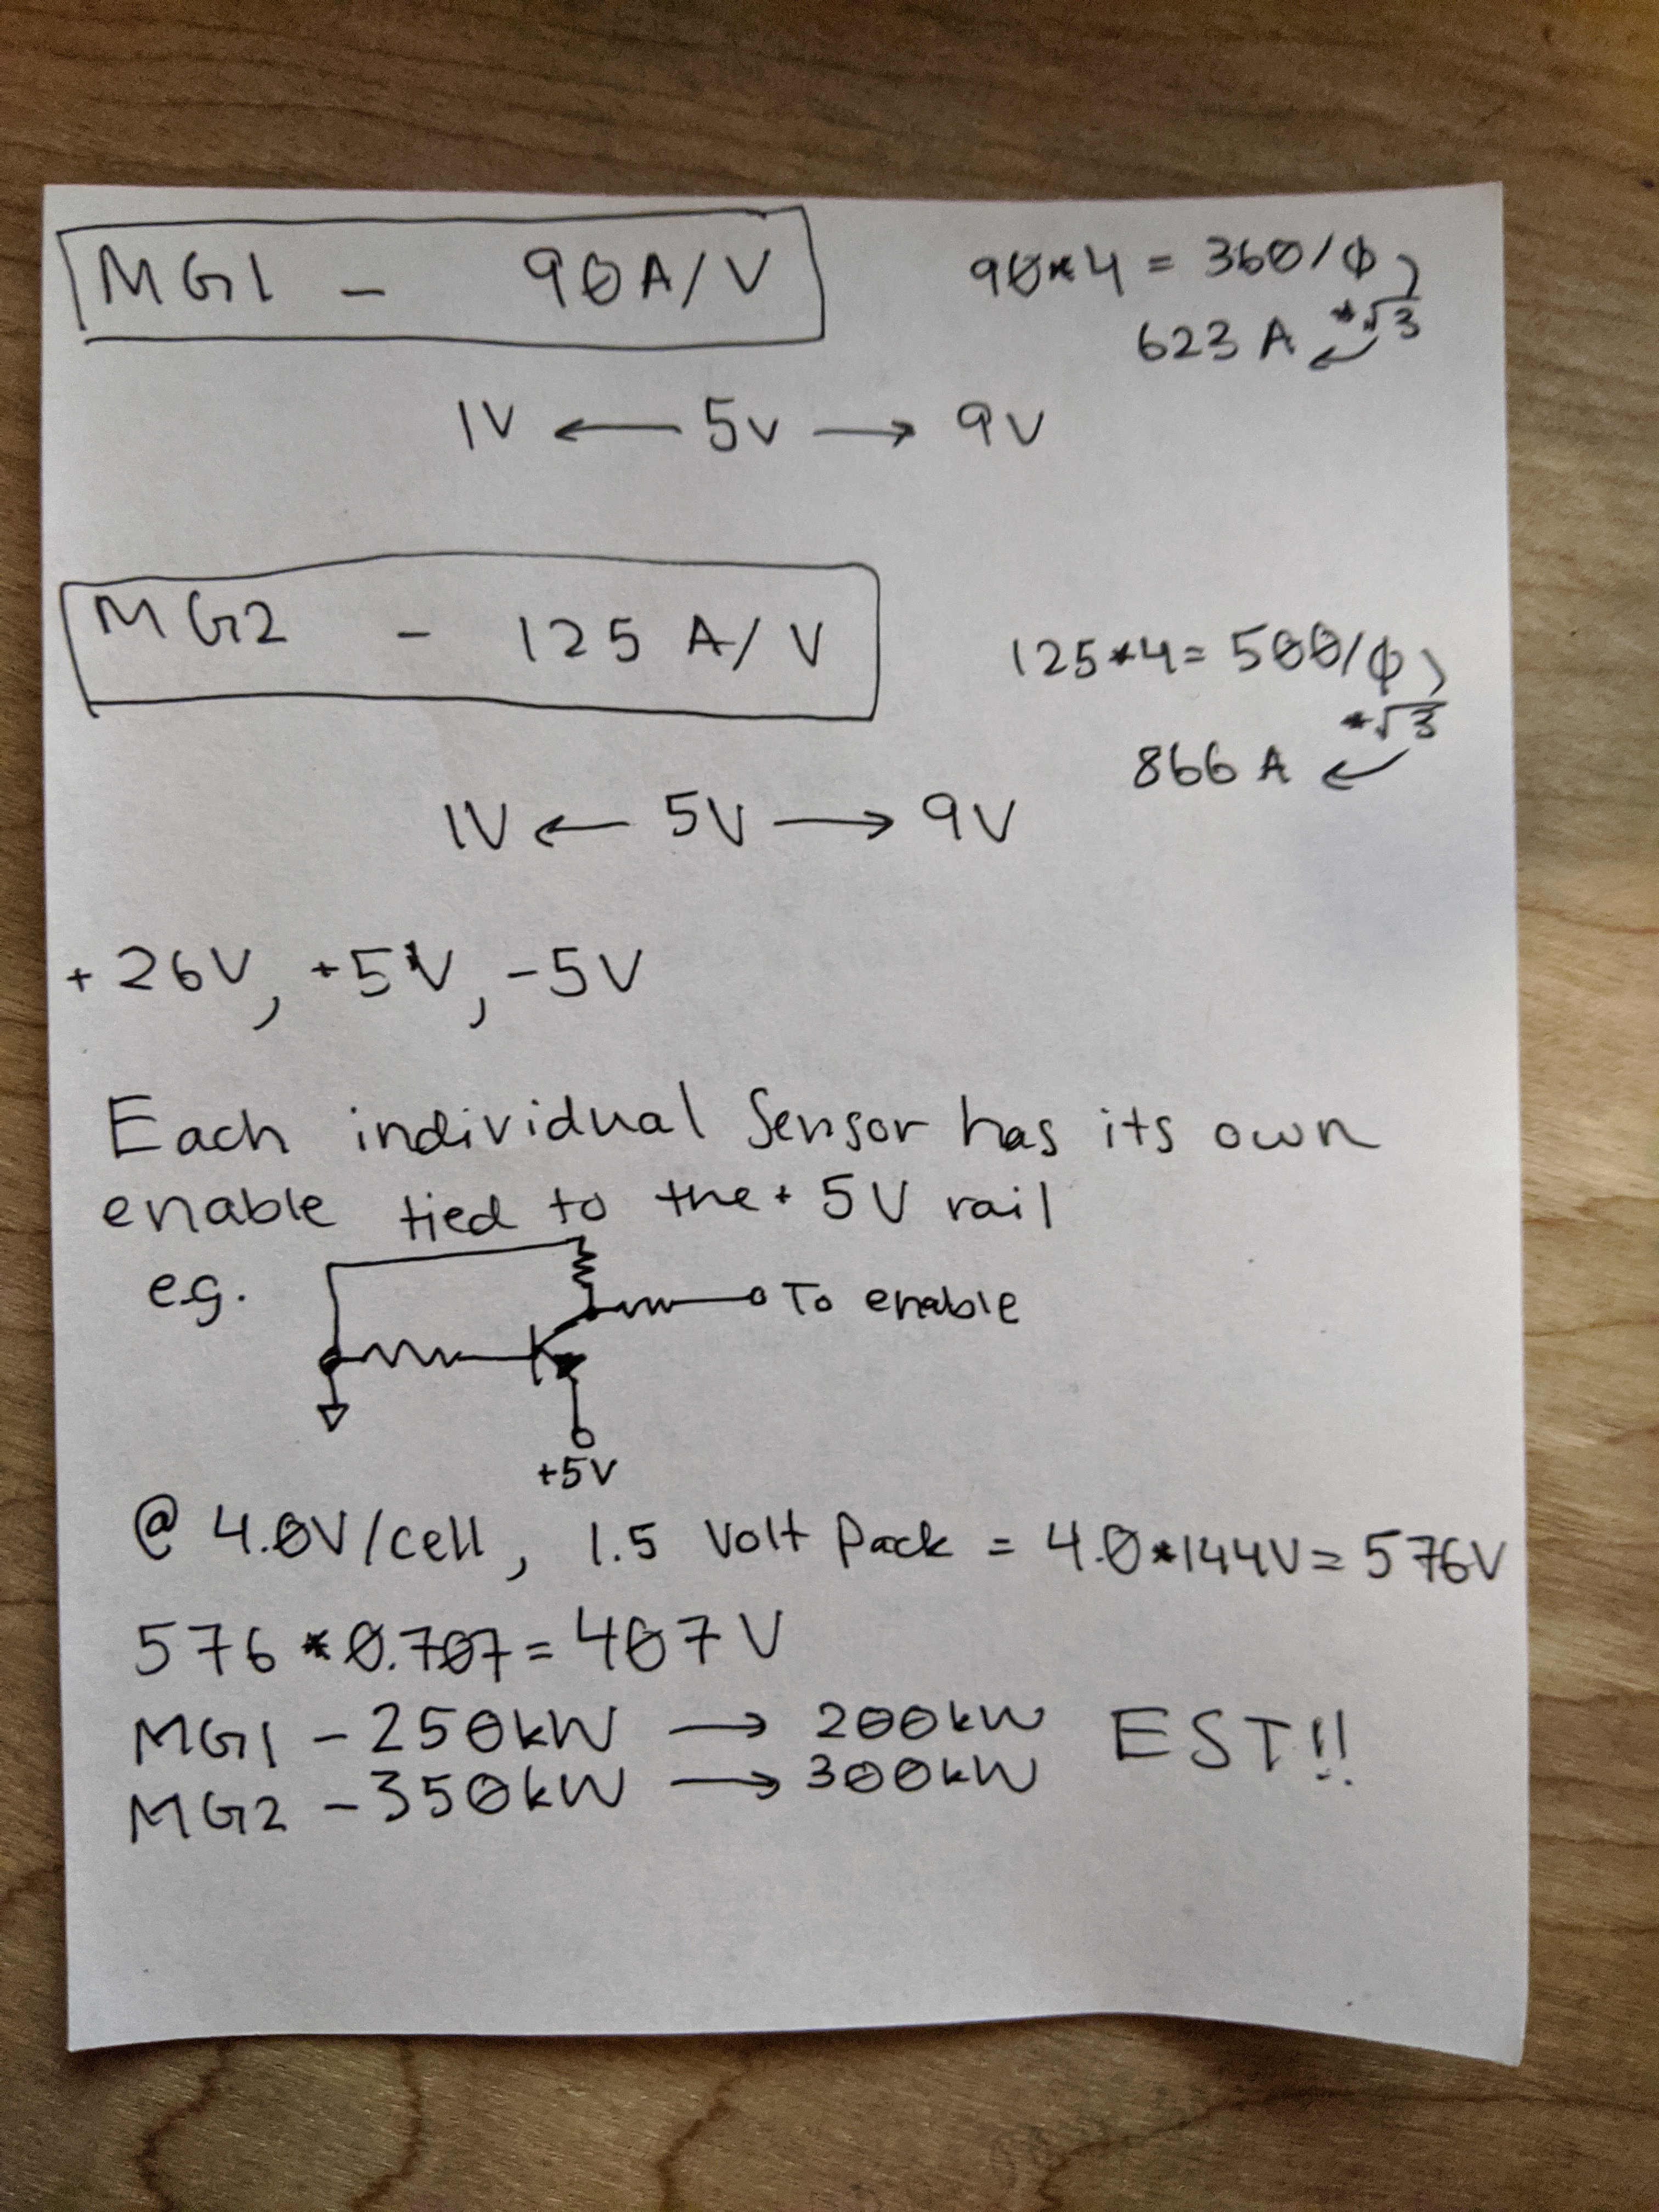 MG1 - 90A/V
90*4 = 360/ϕ
*√3
623 A
1V ← 5V → 9V
MG2 - 125 A/V
125*4= 500/ϕ
*√3
866 A
1V ← 5V → 9V
+26V, +5V, -5V
Each individual Sensor has its own
enable tied to the + 5V rail
e.g.
To enable
+5V
@ 4.0V/cell, 1.5 Volt Pack = 4.0*144V= 576V
576 *0.707= 407 V
MG1 - 250kW → 200kW EST!!
MG2 - 350kW → 300kW